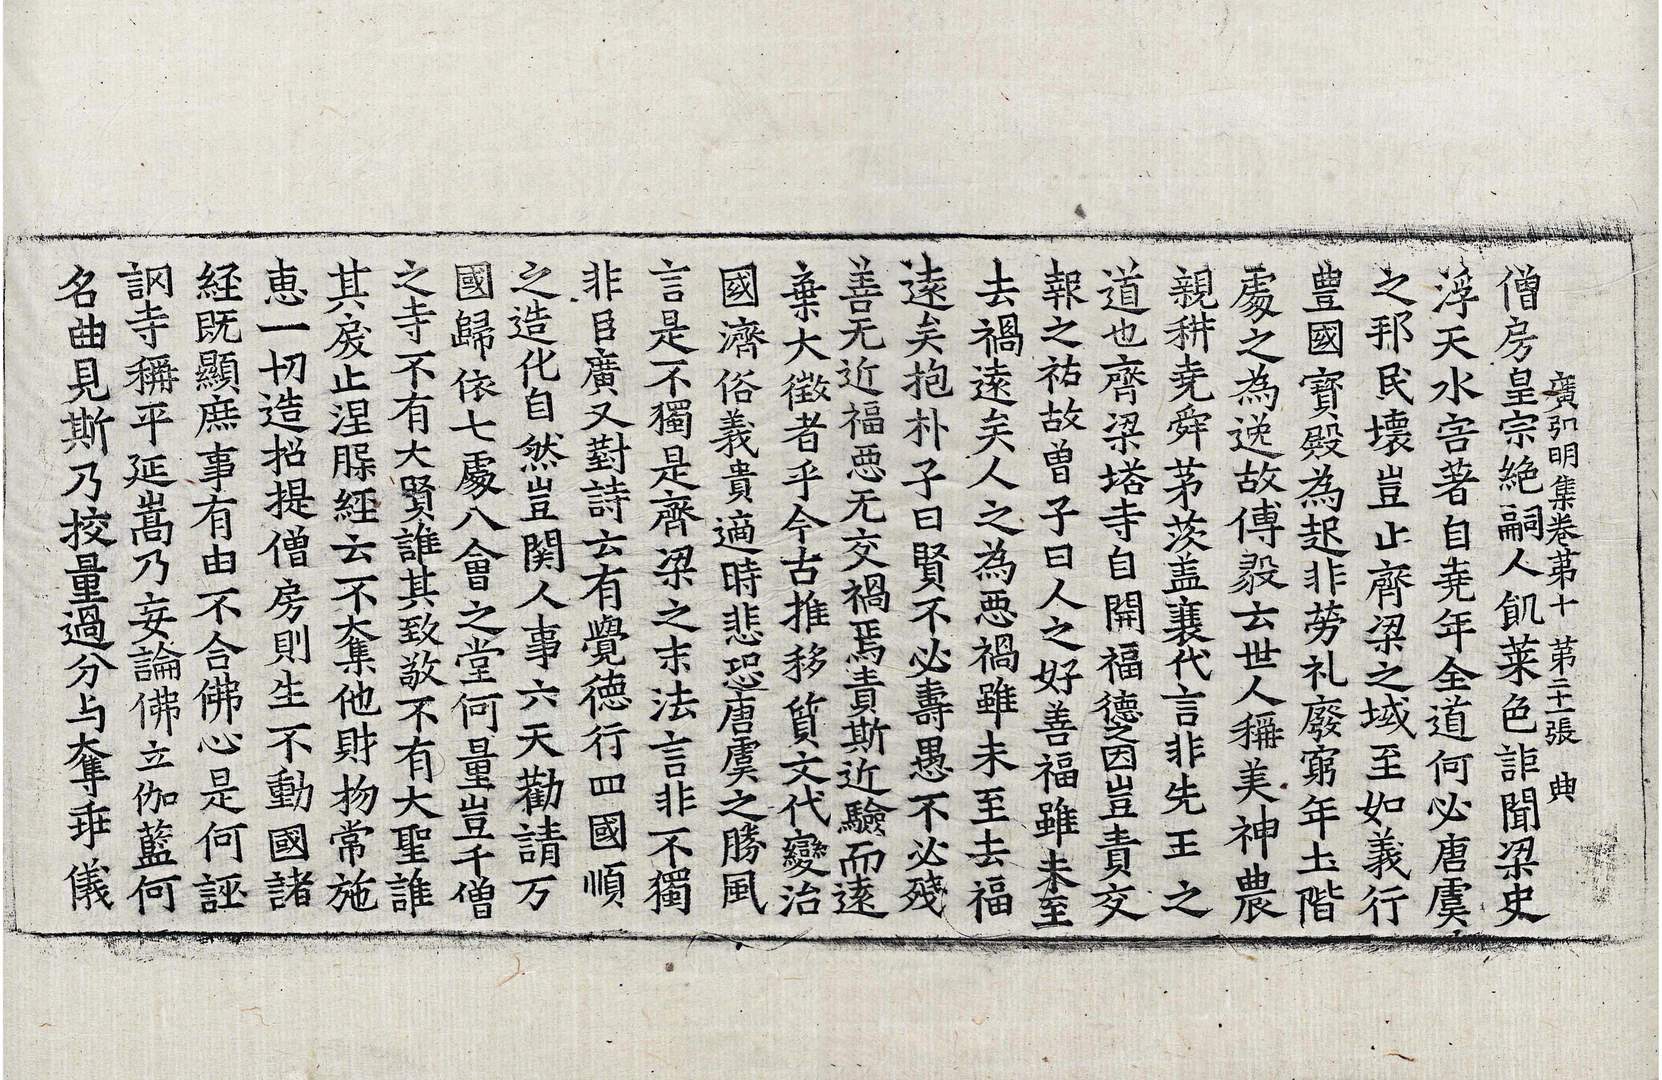 廣弘明集卷苐十 第二十一張 典
僧房皇宗絶嗣人飢菜色詎聞梁史
浮天水害著自堯年全道何必唐虞
之邦民壞豈止齊梁之域至如義行
豊國寶殿為起非勞礼廢窮年土階
處之為逸故傅毅云世人稱美神農
親耕堯舜茅茨盖襄代言非先王之
道也齊梁塔寺自開福德之因豈責交
報之祐故曾子曰人之好善福雖未至
去禍遠矣人之為惡禍雖未至去福
遠矣抱朴子曰賢不必壽愚不必殘
善无近福惡无交禍焉責斯近驗而遠
棄大徵者乎今古推移質文代變治
國濟俗義貴適時悲恐唐虞之勝風
言是不獨是齊梁之末法言非不獨
非臣廣又對詩云有覺德行四國順
之造化自然豈関人事六天勸請万
國歸依七處八會之堂何量豈千僧
之寺不有大賢誰其致敬不有大聖誰
其戾止涅脲經云不奪他財物常施
恵一切造招提僧房則生不動國諸
経既顯庶事有由不合佛心是何誣
詗寺稱平延嵩乃妄論佛立伽藍何
名曲見斯乃挍量過分与奪乖儀